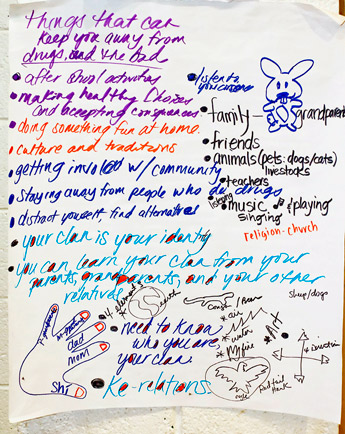 things that can
keep you away from
drugs, and the bad
• after school activities
• making healthy choices
and accepting consequences
• doing something fun at home.
• culture and traditions
• getting involed w/ community
• staying away from people who do drugs
• distract yourself, find alternatives
• your clan is your identity
• you can learn your clan from your
parents, grandparents, and your other
relatives
• listen to
• family - grandparents
• friends
• animals (pets: dogs/cats)
livestocks
• teachers
• listening music & playing
singing
religion-church
earth
• need to know
who you are,
your clan.
• Ke-relations.
dad
mom
Shi
* air
* water
* Art
* 4 direction
Sheep/dogs
Redtail
Hawk